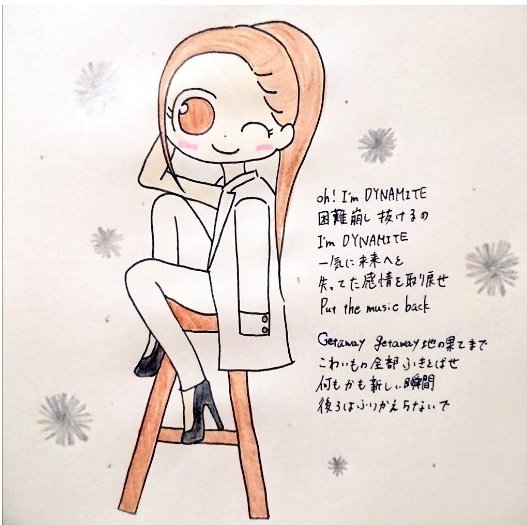 oh! I'm DYNAMITE
困難崩し抜けるの
I'm DYNAMITE
一気に未来へと
失ってた感情を取り戻せ
Put the music back
Getaway getaway 地の果てまで
こわいもの全部ふきとばせ
何もかも新しい瞬間
後ろはふりかえらないで